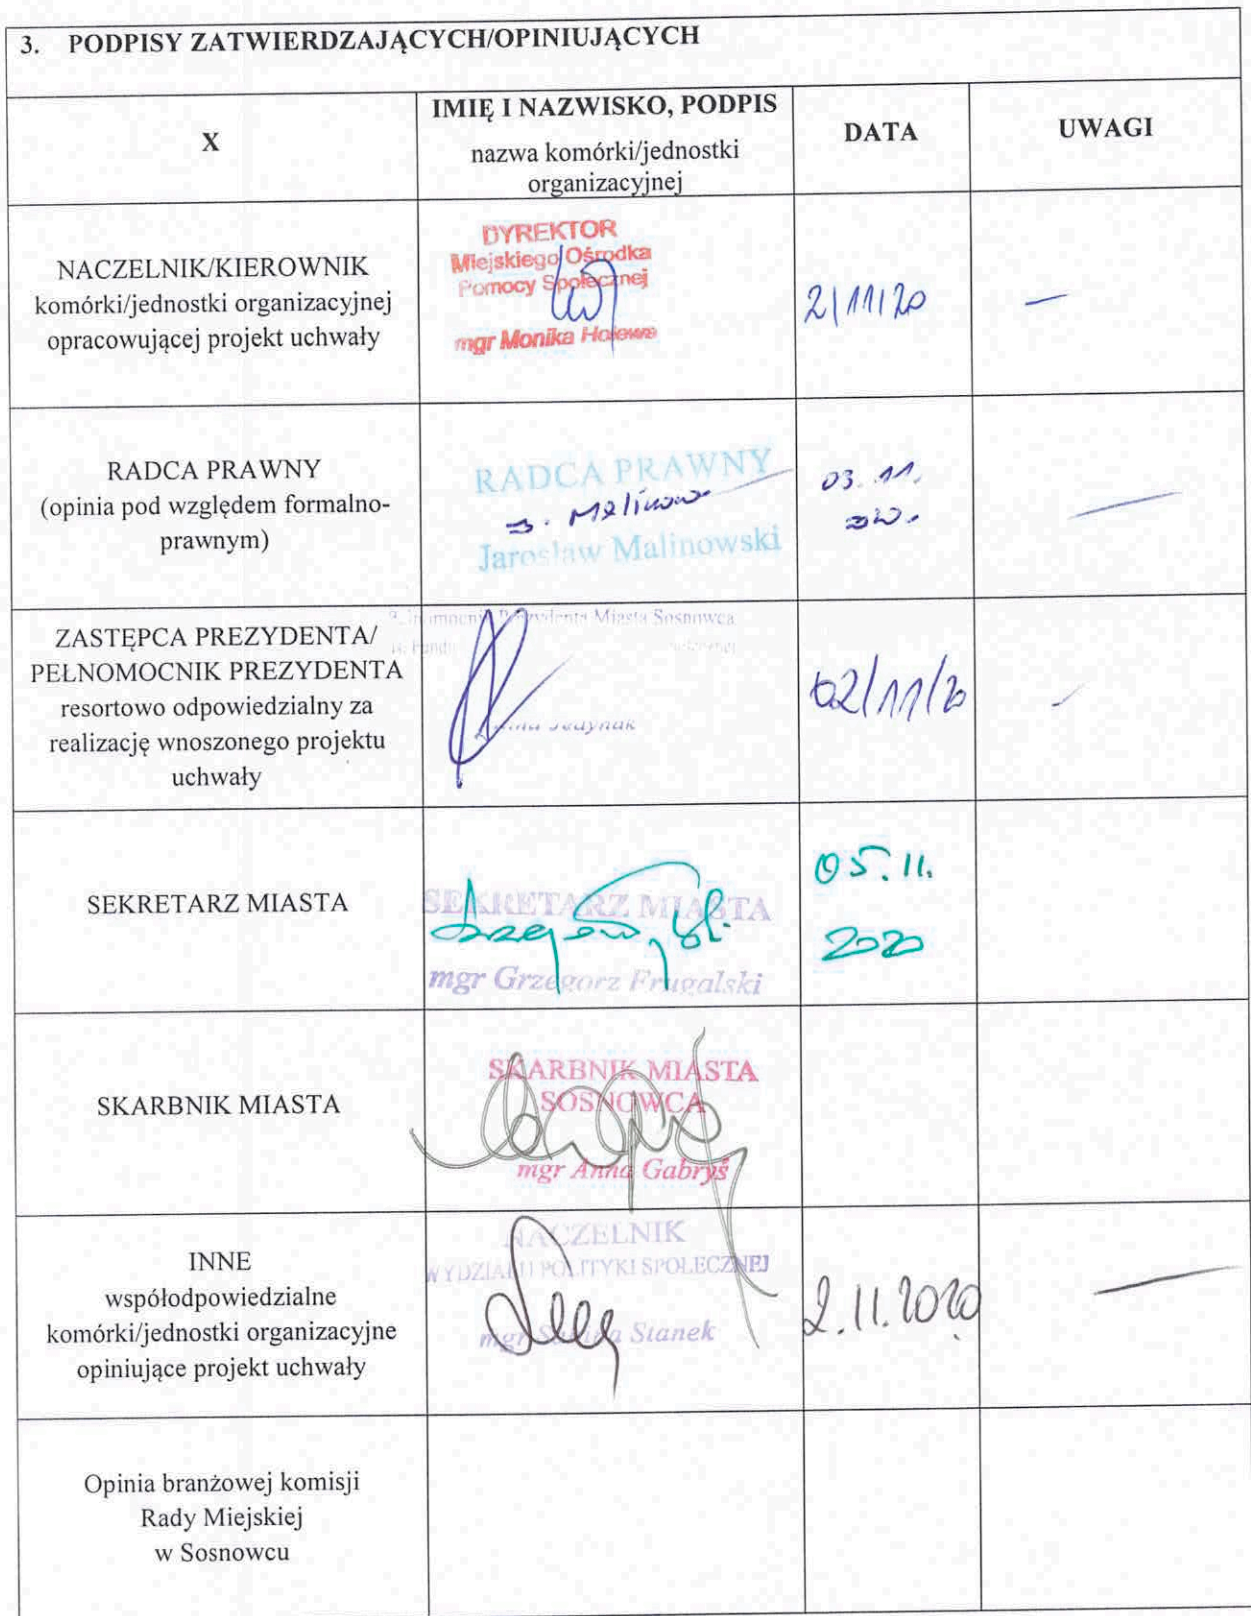 3. PODPISY ZATWIERDZAJĄCYCH/OPINIUJĄCYCH
X
IMIĘ I NAZWISKO, PODPIS
nazwa komórki/jednostki
organizacyjnej
DATA
UWAGI
NACZELNIK/KIEROWNIK
komórki/jednostki organizacyjnej
opracowującej projekt uchwały
DYREKTOR
Miejskiego Ośrodka
Pomocy Społecznej
mgr Monika
2/11/20
—
RADCA PRAWNY
(opinia pod względem formalno-
prawnym)
RADCA PRAWNY
Jarosław Malinowski
03.11.
—
ZASTĘPCA PREZYDENTA/
PEŁNOMOCNIK PREZYDENTA
resortowo odpowiedzialny za
realizację wnoszonego projektu
uchwały
Prezydenta Miasta Sosnowca
Jedynak
02/11/20
—
SEKRETARZ MIASTA
SEKRETARZ MIASTA
mgr Grzegorz Frugalski
05.11.
2020
SKARBNIK MIASTA
SKARBNIK MIASTA
SOSNOWCA
mgr Anna Gabryś
INNE
współodpowiedzialne
komórki/jednostki organizacyjne
opiniujące projekt uchwały
NACZELNIK
WYDZIAŁU POLITYKI SPOŁECZNEJ
mgr Stanek
2.11.2020
—
Opinia branżowej komisji
Rady Miejskiej
w Sosnowcu